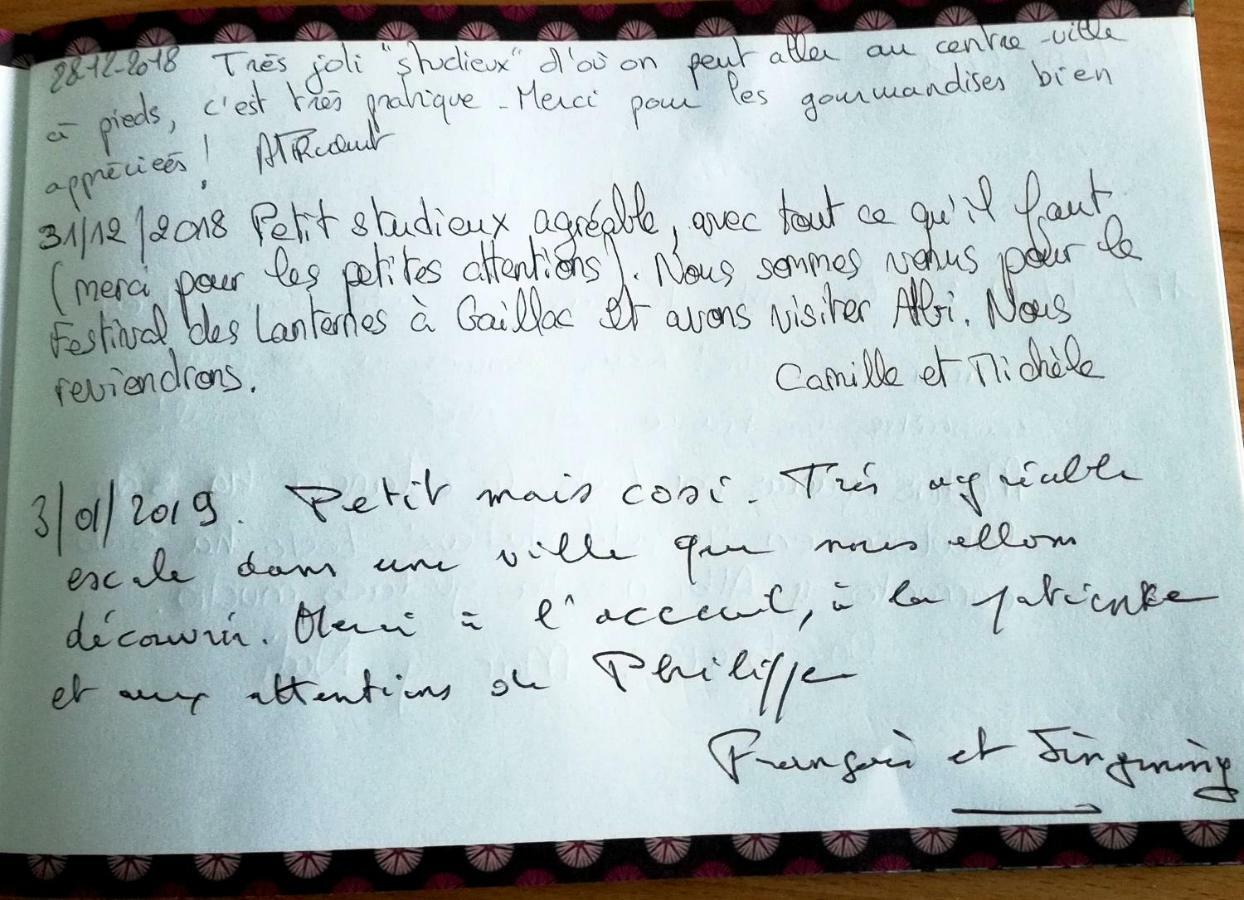 28-12-2018 Très joli "studieux" d'où on peut aller au centre-ville
à pieds, c'est très pratique - Merci pour les gourmandises bien
appréciées !
31/12/2018 Petit studieux agréable, avec tout ce qu'il faut
(merci pour les petites attentions). Nous sommes venus pour le
Festival des Lanternes à Gaillac et avons visiter Albi. Nous
reviendrons. Camille et Michèle
3/01/2019. Petit mais cosi. Très agréable
escale dans une ville que nous allons
découvrir. Merci à l'acceuil, à la patience
et aux attentions de Philippe
François et Jingming